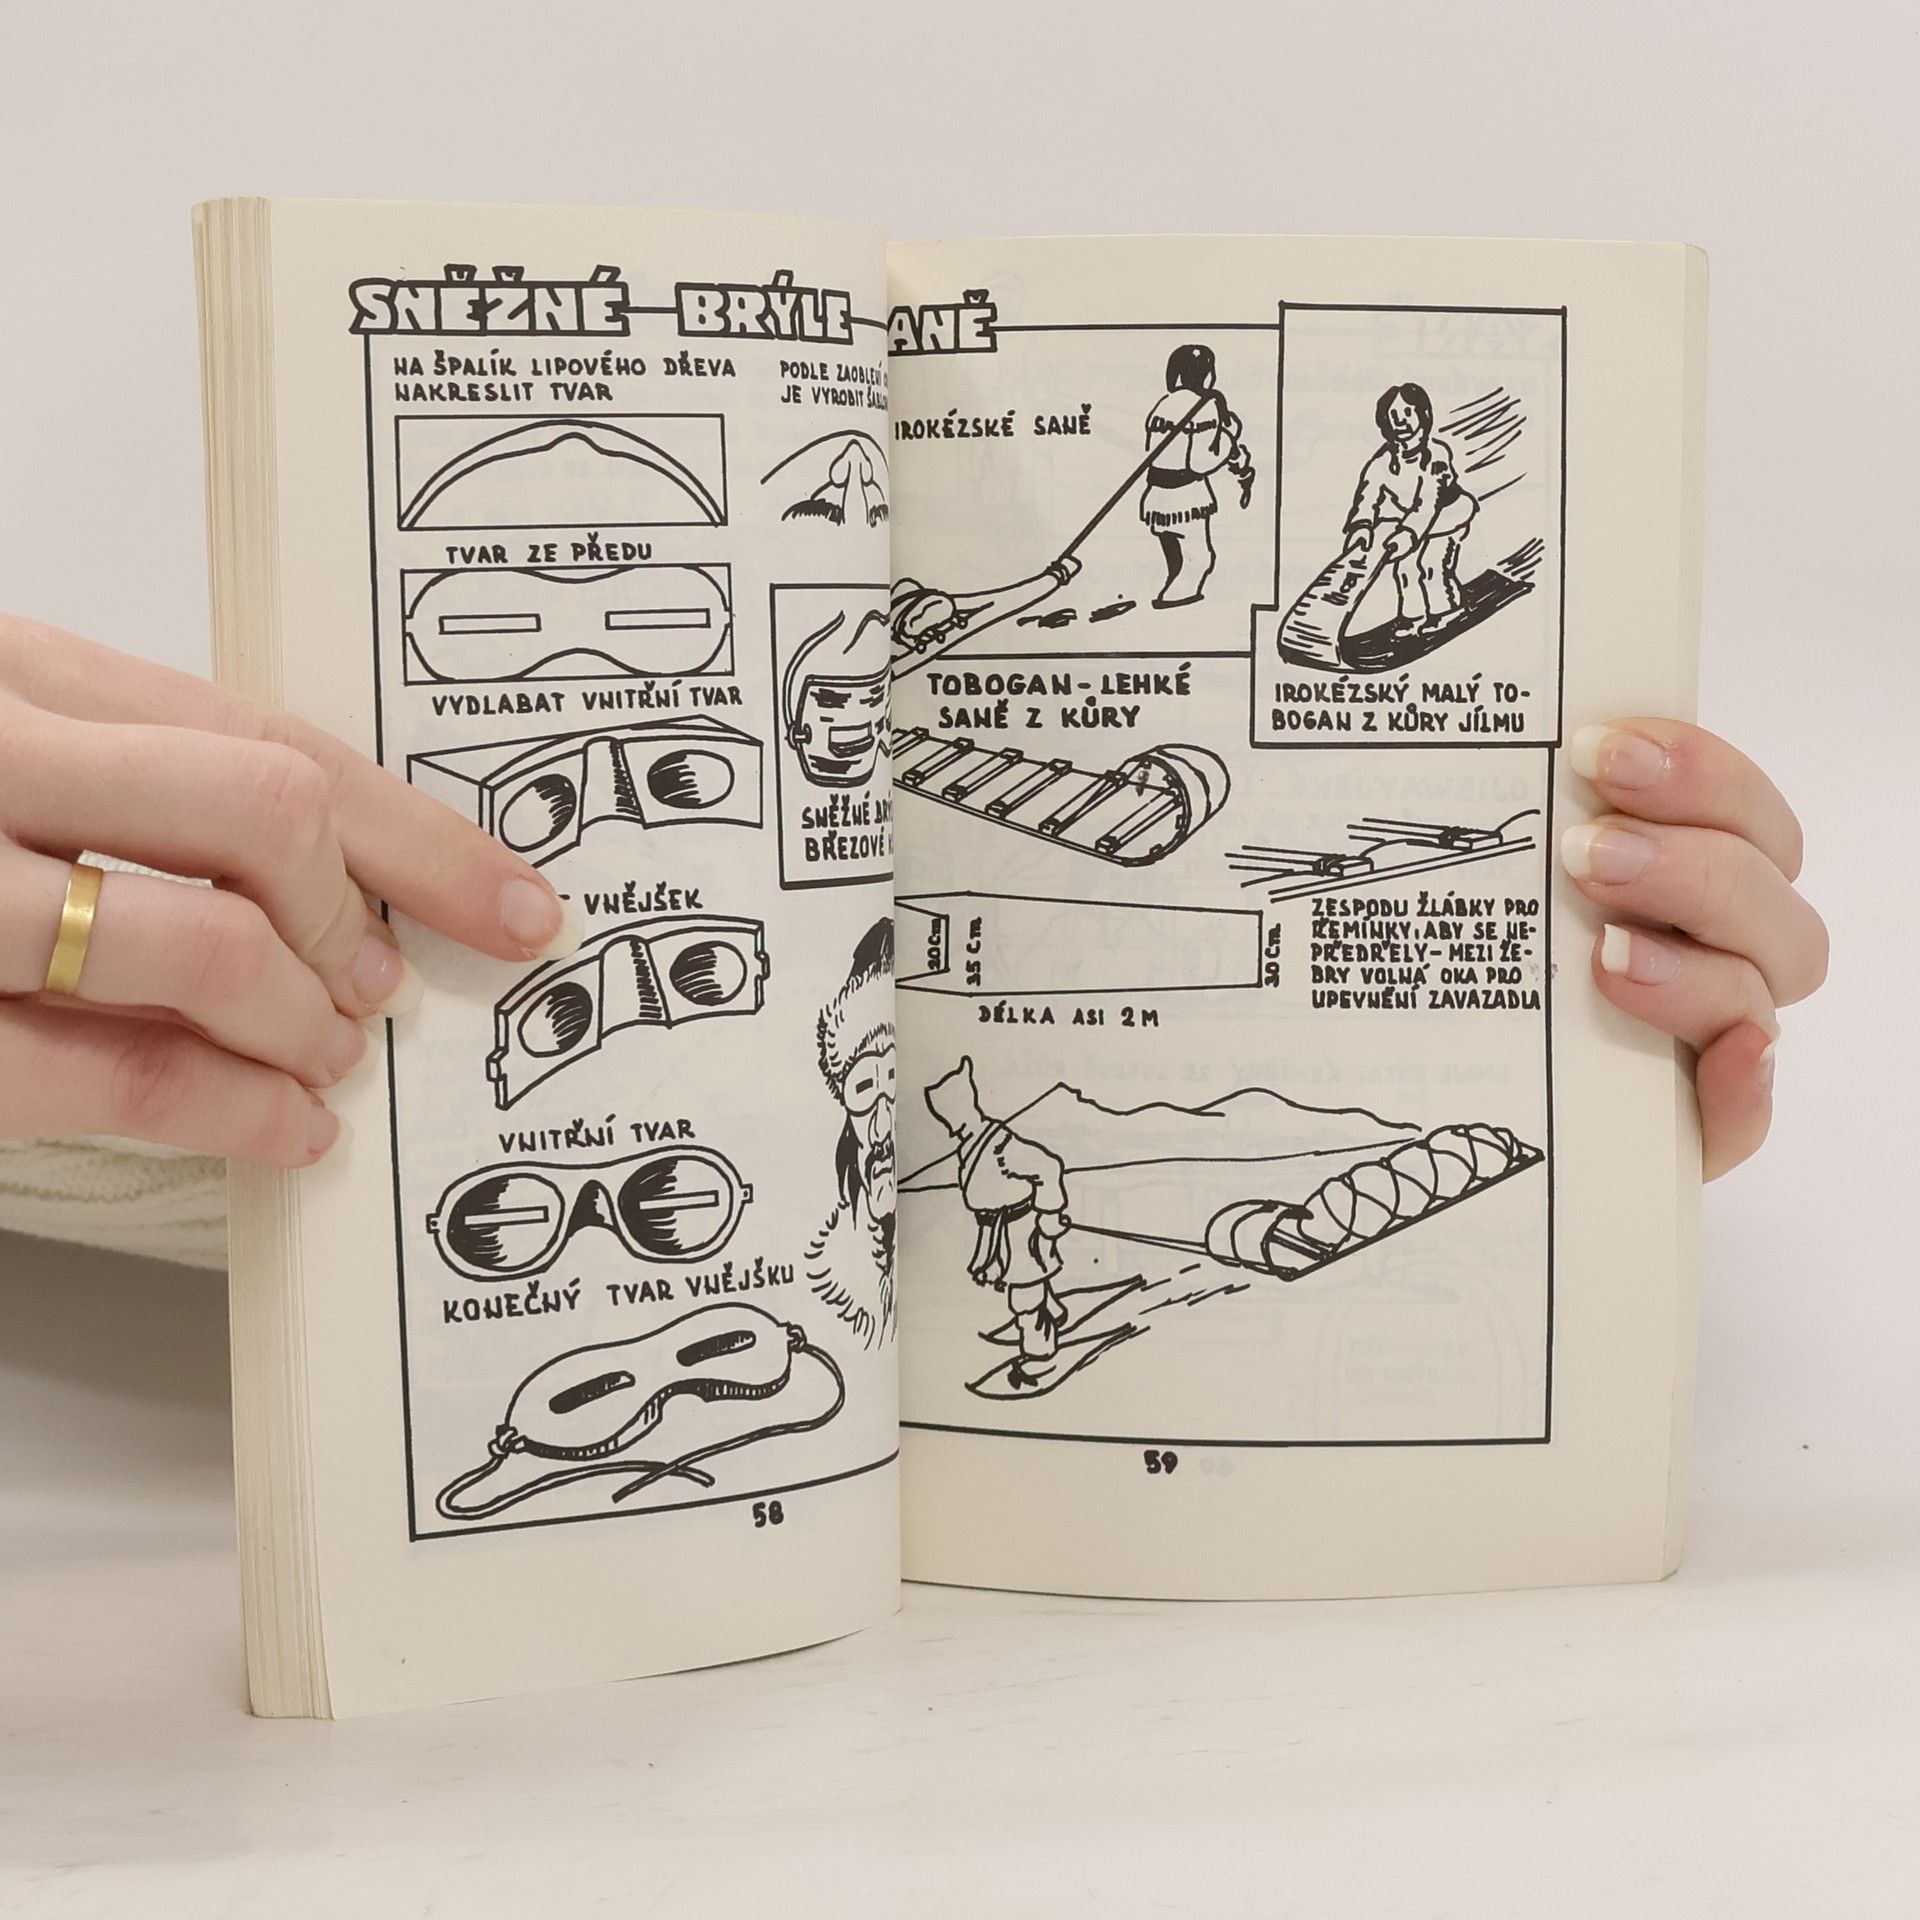 SNĚŽNÉ BRÝLE
NA ŠPALÍK LIPOVÉHO DŘEVA
NAKRESLIT TVAR
PODLE ZAOBLENÍ
JE VYROBIT
TVAR ZE PŘEDU
VYDLABAT VNITŘNÍ TVAR
SNĚŽNÉ
BŘEZOVÉ
VNĚJŠEK
VNITŘNÍ TVAR
KONEČNÝ TVAR VNĚJŠKU
58
ANĚ
IROKÉZSKÉ SANĚ
IROKÉZSKÝ MALÝ TO-
BOGAN Z KŮRY JÍLMU
TOBOGAN - LEHKÉ
SANĚ Z KŮRY
20 Cm
35 Cm
30 Cm
DÉLKA ASI 2 M
ZESPODU ŽLÁBKY PRO
ŘEMÍNKY, ABY SE NE-
PŘEDŘELY - MEZI ŽE-
BRY VOLNÁ OKA PRO
UPEVNĚNÍ ZAVAZADLA
59